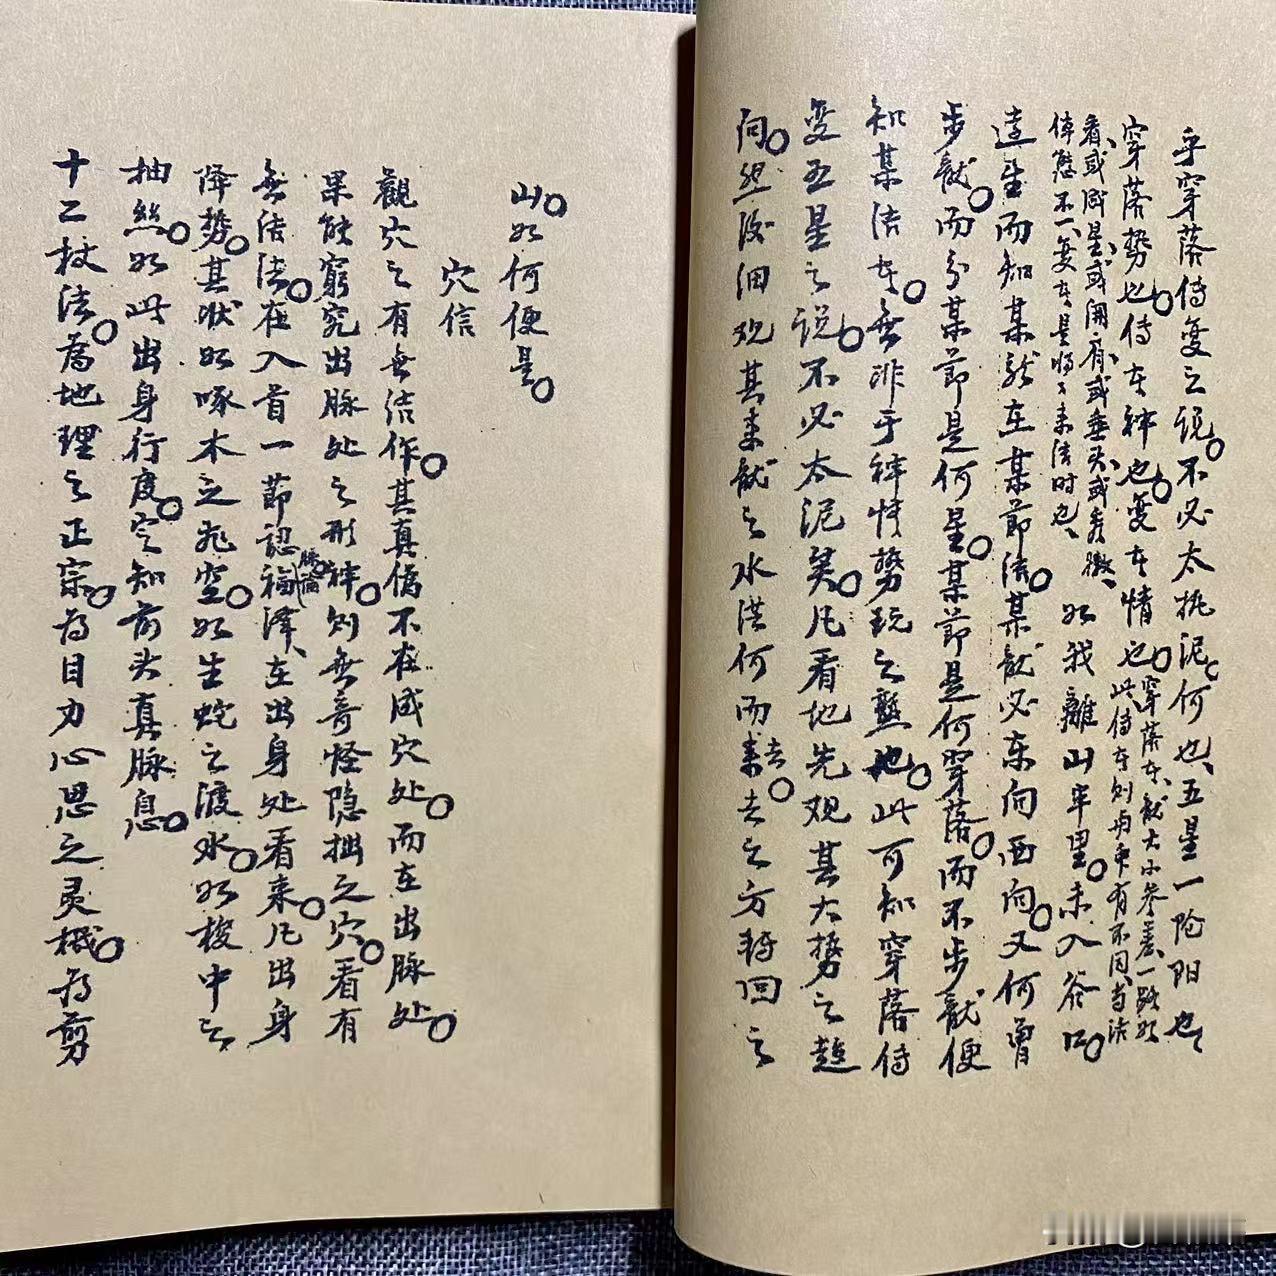 乎穿落传变之说。不必太执泥何也、五星一阴阳也、
穿落势也。传者神也。变者情也。穿落者、龙大小参差、一路如
此传者则两束有不同、当结
看、或成星、或開肩、或垂头、或
体態不一、变者是将之未结时也、
如我離山半里。未入谷口。
遠望而知某龙在某節结。某龙必东向西向。又何曾
步龙。而分某節是何星。某節是何穿落。而不步龙便
知某结者。無非于神情势玩之熟也。此可知穿落传
变五星之说。不必太泥矣。凡看地先观其大势之趋
向。然後细观其来龙之水洪何而来去。去之方转回之
山。如何便是。
穴信
觀穴之有無结作。其真偽不在成穴处。而在出脉处。
果能窮究出脉处之形神。则無奇怪隐拙之穴。看有
無结法。在入首一節認福泽、在出身处看来。凡出身
降势。其状如啄木之飛空。如生蛇之渡水。如梭中之
抽丝。如此出身行度。定知前头真脉息。
十二杖法。為地理之正宗。為目力心思之灵機。為剪